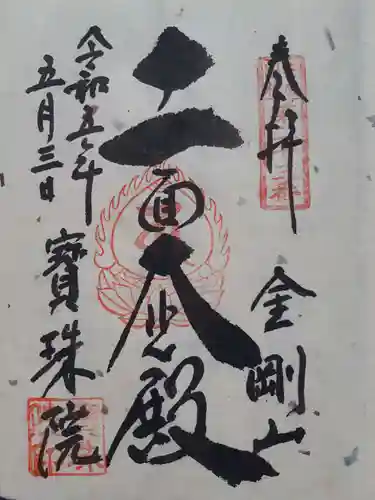 奉拝
金剛山
十一面大悲殿
令和五年
五月三日
寶珠院